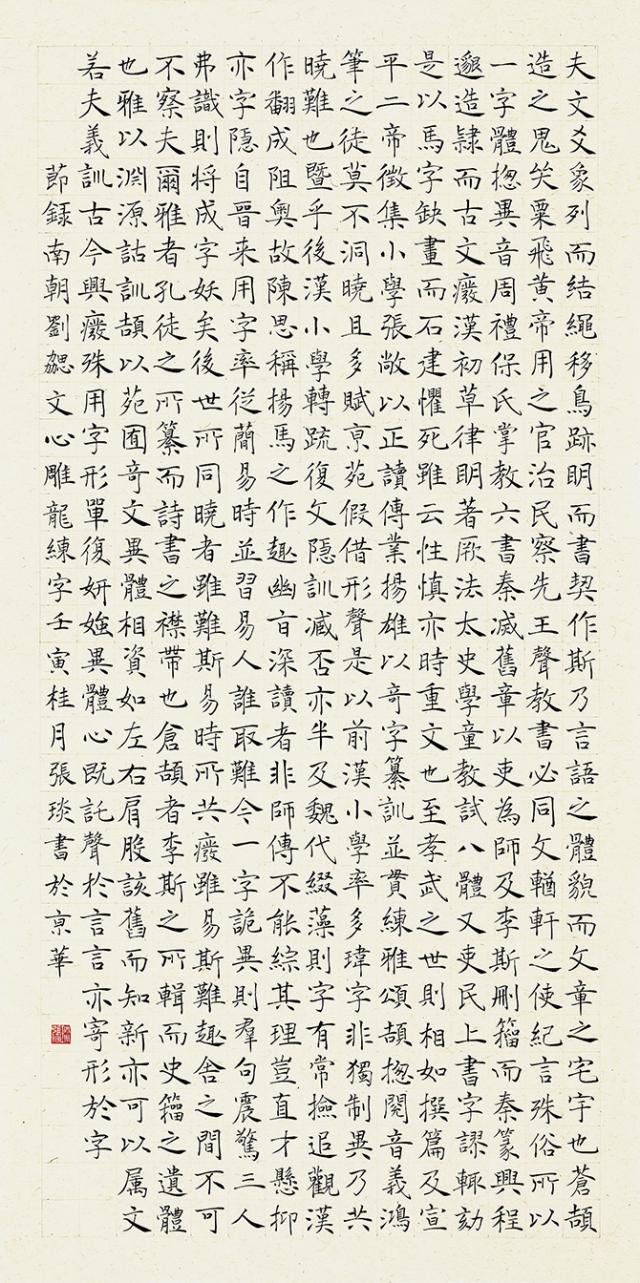 夫文爻象列而結繩移鳥跡眀而書契作斯乃言語之體貌而文章之宅宇也蒼頡
造之鬼笑粟飛黄帝用之官治民察先王聲教書必同文輶軒之使紀言殊俗所以
一字體揔異音周禮保氏掌教六書秦滅舊章以吏為師及李斯刪籀而秦篆興程
邈造隸而古文廢漢初草律眀著厥法太史學童教試八體又吏民上書字謬輒劾
是以馬字缺畫而石建懼死雖云性慎亦時重文也至孝武之世則相如撰篇及宣
平二帝徵集小學張敞以正讀傳業揚雄以奇字纂訓並貫練雅頌頡揔閱音義鴻
筆之徒莫不洞曉且多賦亰苑假借形聲是以前漢小學率多瑋字非獨制異乃共
曉難也暨乎後漢小學轉疏復文隱訓臧否亦半及魏代綴藻則字有常撿追觀漢
作翻成阻奧故陳思稱揚馬之作趣幽旨深讀者非師傳不能綜其理豈直才懸抑
亦字隱自晉来用字率從簡易時並習易人誰取難今一字詭異則羣句震驚三人
弗識則將成字妖矣後世所同曉者雖難斯易時所共廢雖易斯難趣舍之間不可
不察夫爾雅者孔徒之所纂而詩書之襟帶也倉頡者李斯之所輯而史籀之遺體
也雅以淵源詁訓頡以苑囿奇文異體相資如左右肩股該舊而知新亦可以属文
若夫義訓古今興廢殊用字形單復妍媸異體心既託聲於言言亦寄形於字
節録南朝劉勰文心雕龍練字壬寅桂月張琰書於亰華